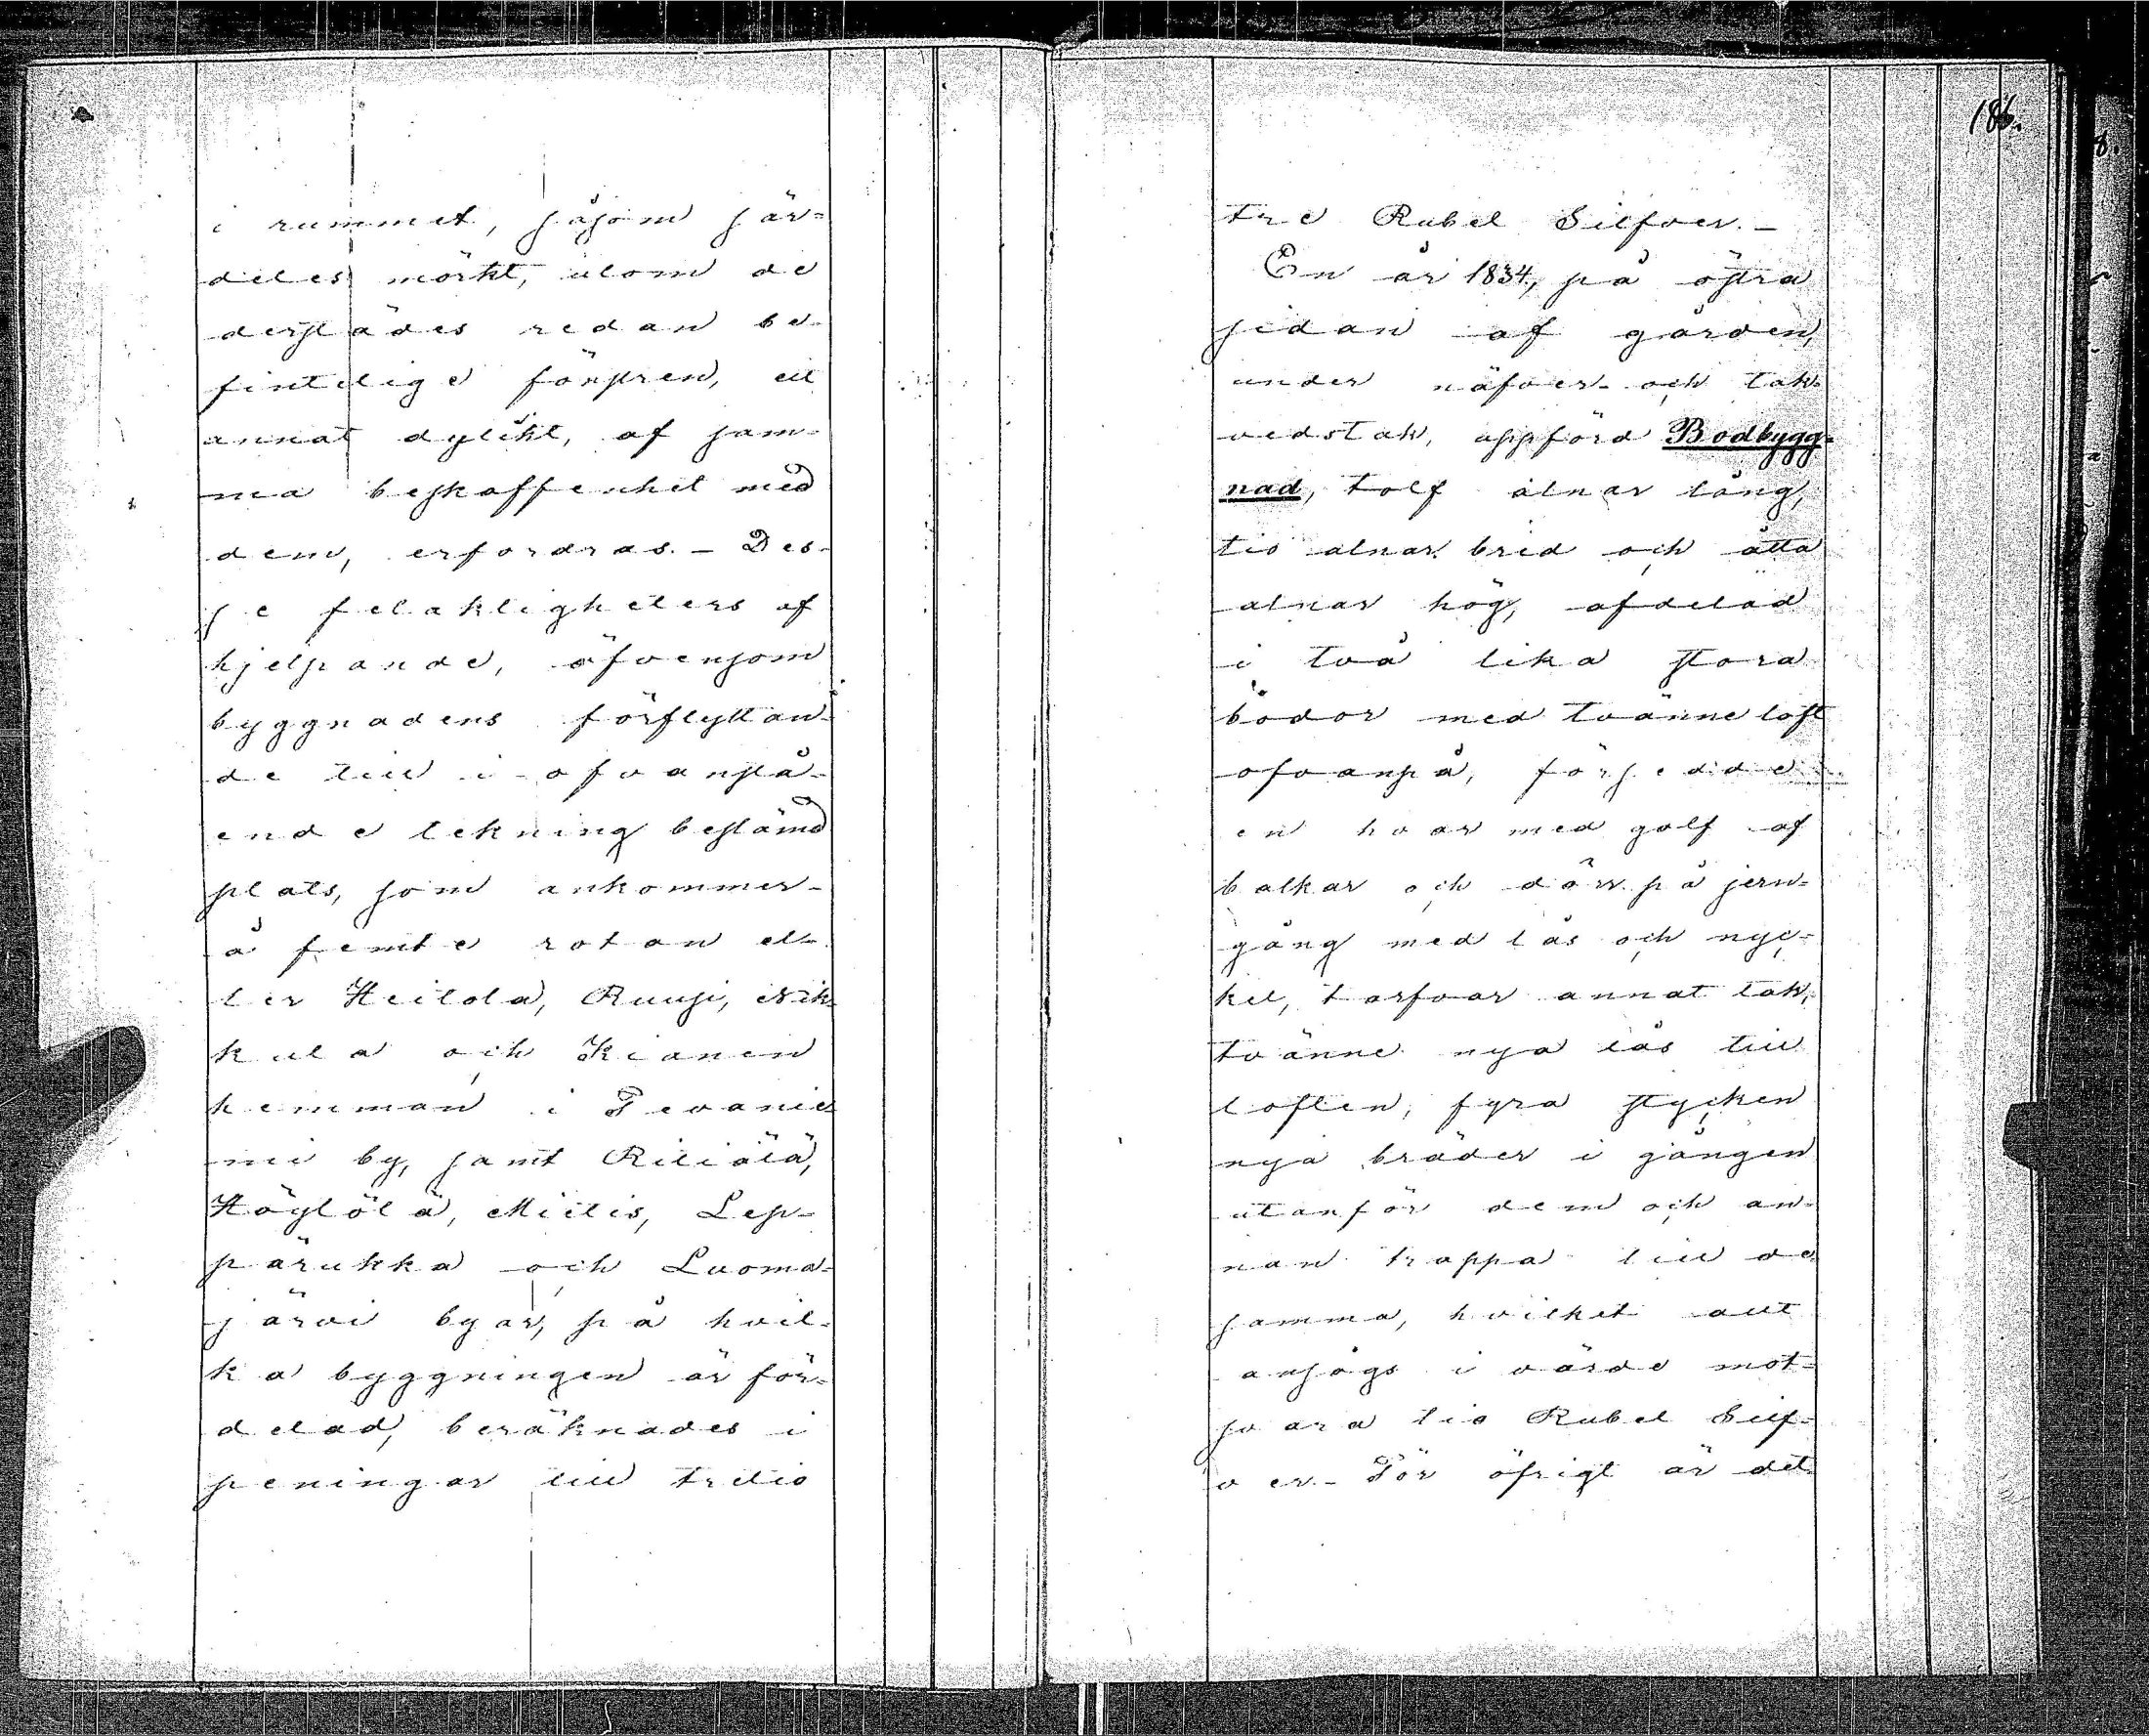 i rummet, såsom sär-
deles mörkt, utom de
derstädes redan be-
fintelige fönstren, ett
annat dylikt, af sam-
ma beskaffenhet med
dem, erfordras. – Des-
se felaktigheters af
hjelpande, äfvensom
byggnadens förflyttan-
de till i ofvanstå-
ende tekning bestämd
plats, som ankommer
å femte rotan el-
ler Heilola, Ruusi, Nik-
kula och Kianen
hemman i Tevanie
mi by, samt Riliälä,
Höylölä, Mielis, Lep-
pärukka och Luoma-
järvi byar, på hvil-
ka byggningen är för-
delad, beräknades i
peningar till tretio
186.
tre Rubel Silfver. –
En år 1834, på östra
sidan af gården,
under näfver- och tak-
vedstak, uppförd Bodbygg-
nad, tolf alnar lång,
tio alnar bred och åtta
alnar hög, afdelad
i två lika stora
bodor med tvänne loft
ofvanpå, försedde
en hvar med golf af
balkar och dörr på jern-
gång med lås och nyc-
kel, tarfvar annat tak,
tvänne nya lås till
loften, fyra stycken
nya bräder i gången
utanför dem och an-
nan trappa till de
samma, hvilket allt
ansågs i värde mot-
svara tio Rubel Silf-
ver. – För öfrigt är det